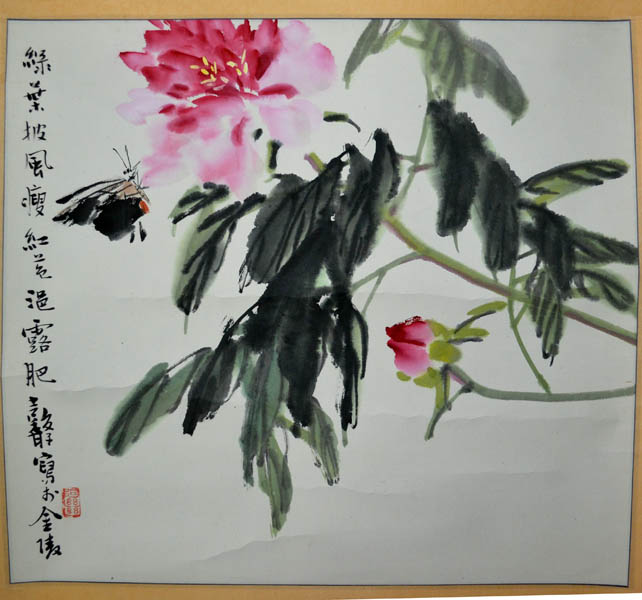 綠葉披風瘦紅花浥露肥 寫於金陵